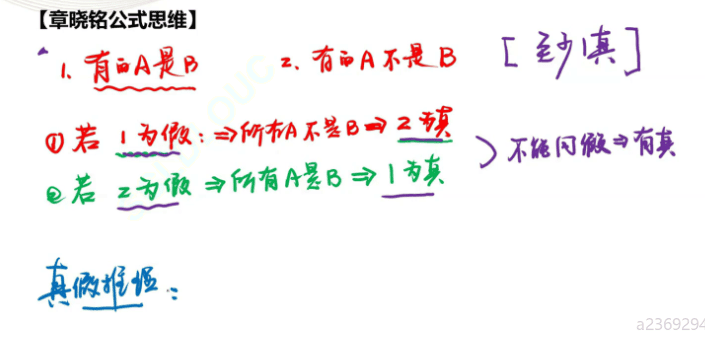 【章晓铭公式思维】
1. 有的A是B 2. 有的A不是B [至少1真]
① 若 1为假:⇒所有A不是B⇒2为真
② 若 2为假⇒所有A是B⇒1为真
不能同假⇒有真
真假推理:
a2369294